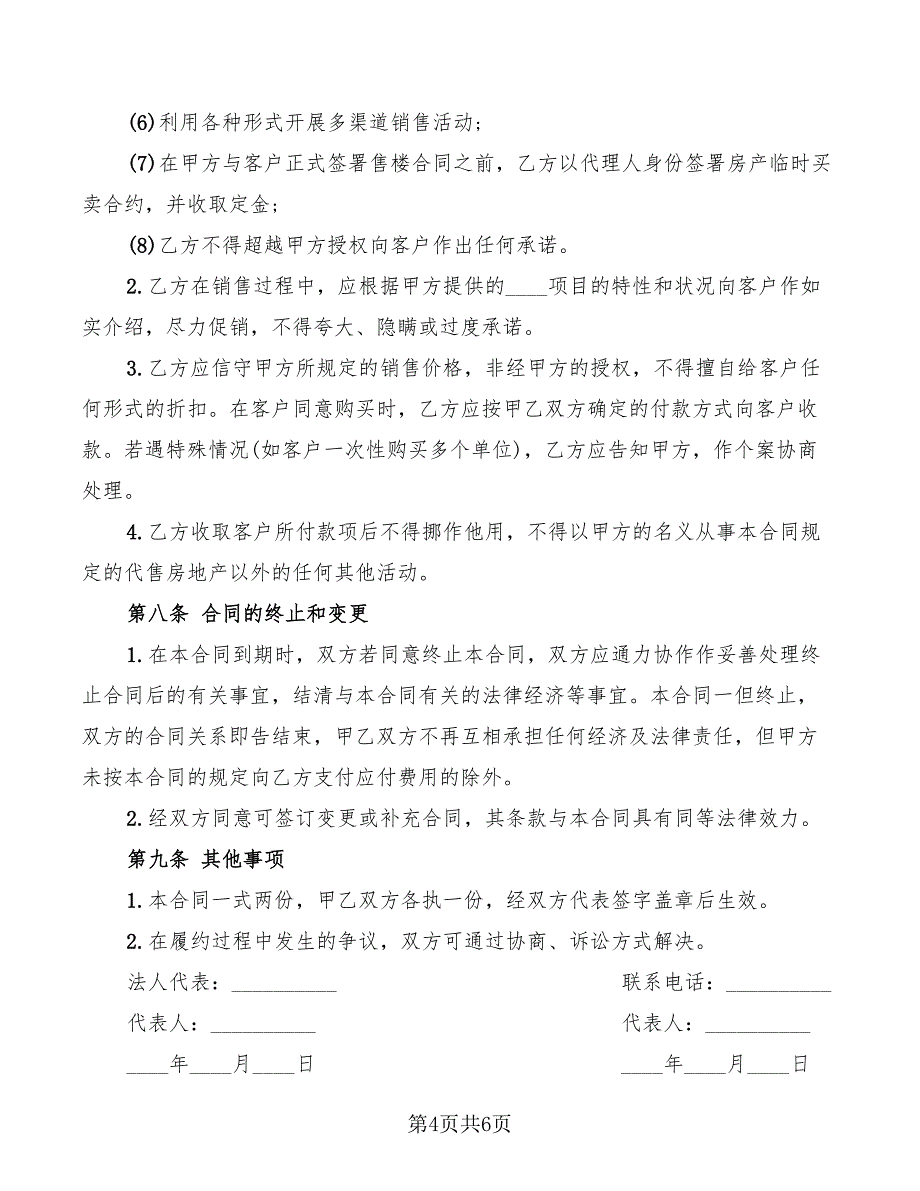 (6)利用各种形式开展多渠道销售活动;
(7)在甲方与客户正式签署售楼合同之前，乙方以代理人身份签署房产临时买
卖合约，并收取定金;
(8)乙方不得超越甲方授权向客户作出任何承诺。
2.乙方在销售过程中，应根据甲方提供的____项目的特性和状况向客户作如
实介绍，尽力促销，不得夸大、隐瞒或过度承诺。
3.乙方应信守甲方所规定的销售价格，非经甲方的授权，不得擅自给客户任
何形式的折扣。在客户同意购买时，乙方应按甲乙双方确定的付款方式向客户收
款。若遇特殊情况(如客户一次性购买多个单位)，乙方应告知甲方，作个案协商
处理。
4.乙方收取客户所付款项后不得挪作他用，不得以甲方的名义从事本合同规
定的代售房地产以外的任何其他活动。
第八条 合同的终止和变更
1.在本合同到期时，双方若同意终止本合同，双方应通力协作作妥善处理终
止合同后的有关事宜，结清与本合同有关的法律经济等事宜。本合同一但终止，
双方的合同关系即告结束，甲乙双方不再互相承担任何经济及法律责任，但甲方
未按本合同的规定向乙方支付应付费用的除外。
2.经双方同意可签订变更或补充合同，其条款与本合同具有同等法律效力。
第九条 其他事项
1.本合同一式两份，甲乙双方各执一份，经双方代表签字盖章后生效。
2.在履约过程中发生的争议，双方可通过协商、诉讼方式解决。
法人代表：__________ 联系电话：__________
代表人：__________ 代表人：__________
____年____月____日 ____年____月____日
第4页共6页